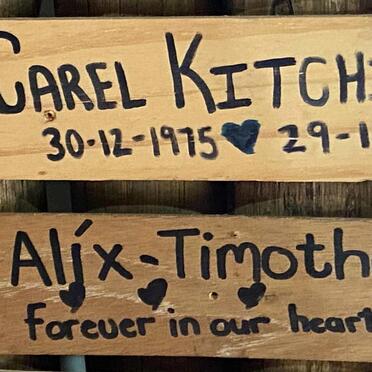 CAREL KITCHI
30-12-1975 ♥ 29-1
Alíx-Timoth
forever in our heart